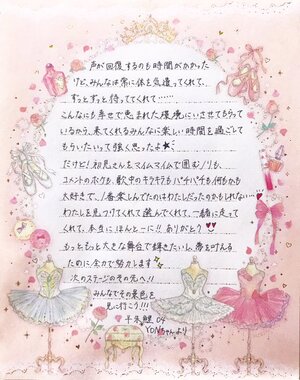 声が回復するのも時間がかかった
けど、みんなは常に体を気遣ってくれて、
ずっとずっと待っててくれて……
こんなにも幸せで恵まれた環境にいさせてもらって
いるから、来てくれるみんなに楽しい時間を過ごして
もらいたいって強く思ったよ
だけど!初見さんをマイムマイムで囲むノリも、
コメントのボケも、歌中のキラキラもパチパチも何もかも
大好きで、1番楽しんでたのはわたしだったのかもしれない
わたしを見つけてくれて選んでくれて、一緒に走って
くれて、本当にほんとーに!!ありがとう
もっともっと大きな舞台で輝きたいし、夢を叶える
ために全力で努力します
次のステージのその先へ!!
みんなでその景色を
見に行こう!!!